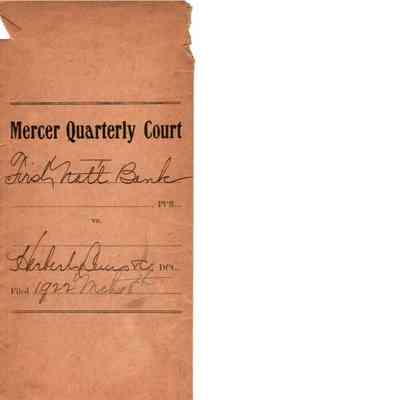 Mercer Quarterly Court
First Nat'l Bank
Pl'ff.
vs.
Herbert &c Df't.
Filed 1922 Mch 8th